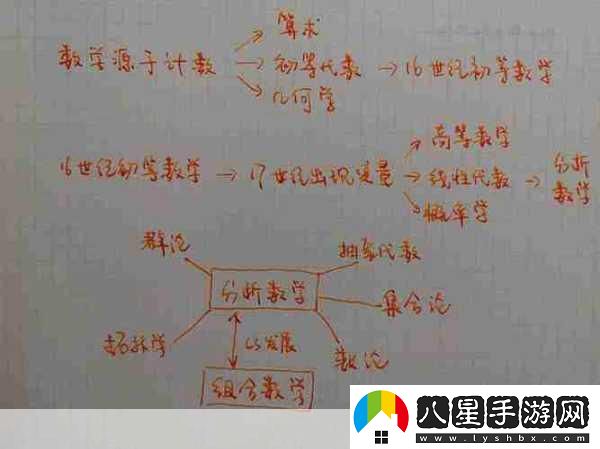 算术
数学源于计数 → 初等代数 → 16世纪初等数学
几何学
高等数学
16世纪初等数学 → 17世纪出现变量 → 线性代数 → 分析数学
概率学
群论
抽象代数
分析数学
集合论
拓扑学
CS发展
数论
组合数学
八星手游网
www.lyshbx.com